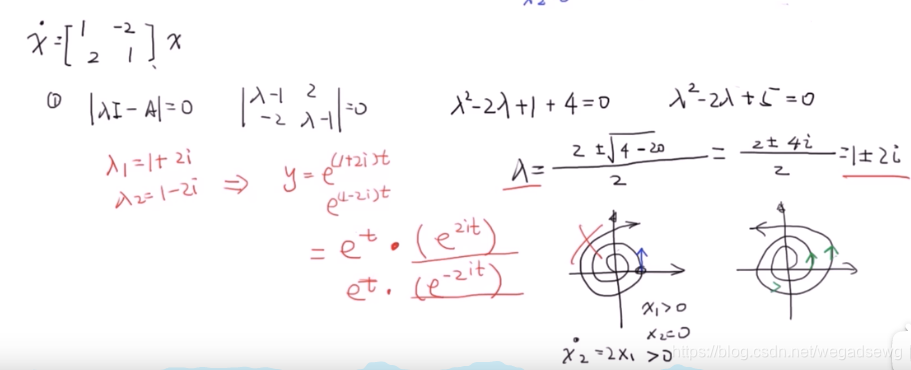 ẋ = [1 -2
2 1] x
① |λI - A| = 0 |λ-1 2
-2 λ-1| = 0 λ²-2λ+1+4=0 λ²-2λ+5=0
λ = (2 ± √(4-20))/2 = (2 ± 4i)/2 = 1 ± 2i
λ₁ = 1 + 2i
λ₂ = 1 - 2i ⇒ y = e^(1+2i)t
e^(1-2i)t
= e^t · (e^2it)
e^t · (e^-2it)
x₁ > 0
x₂ = 0
ẋ₂ = 2x₁ > 0
https://blog.csdn.net/wegadsewg